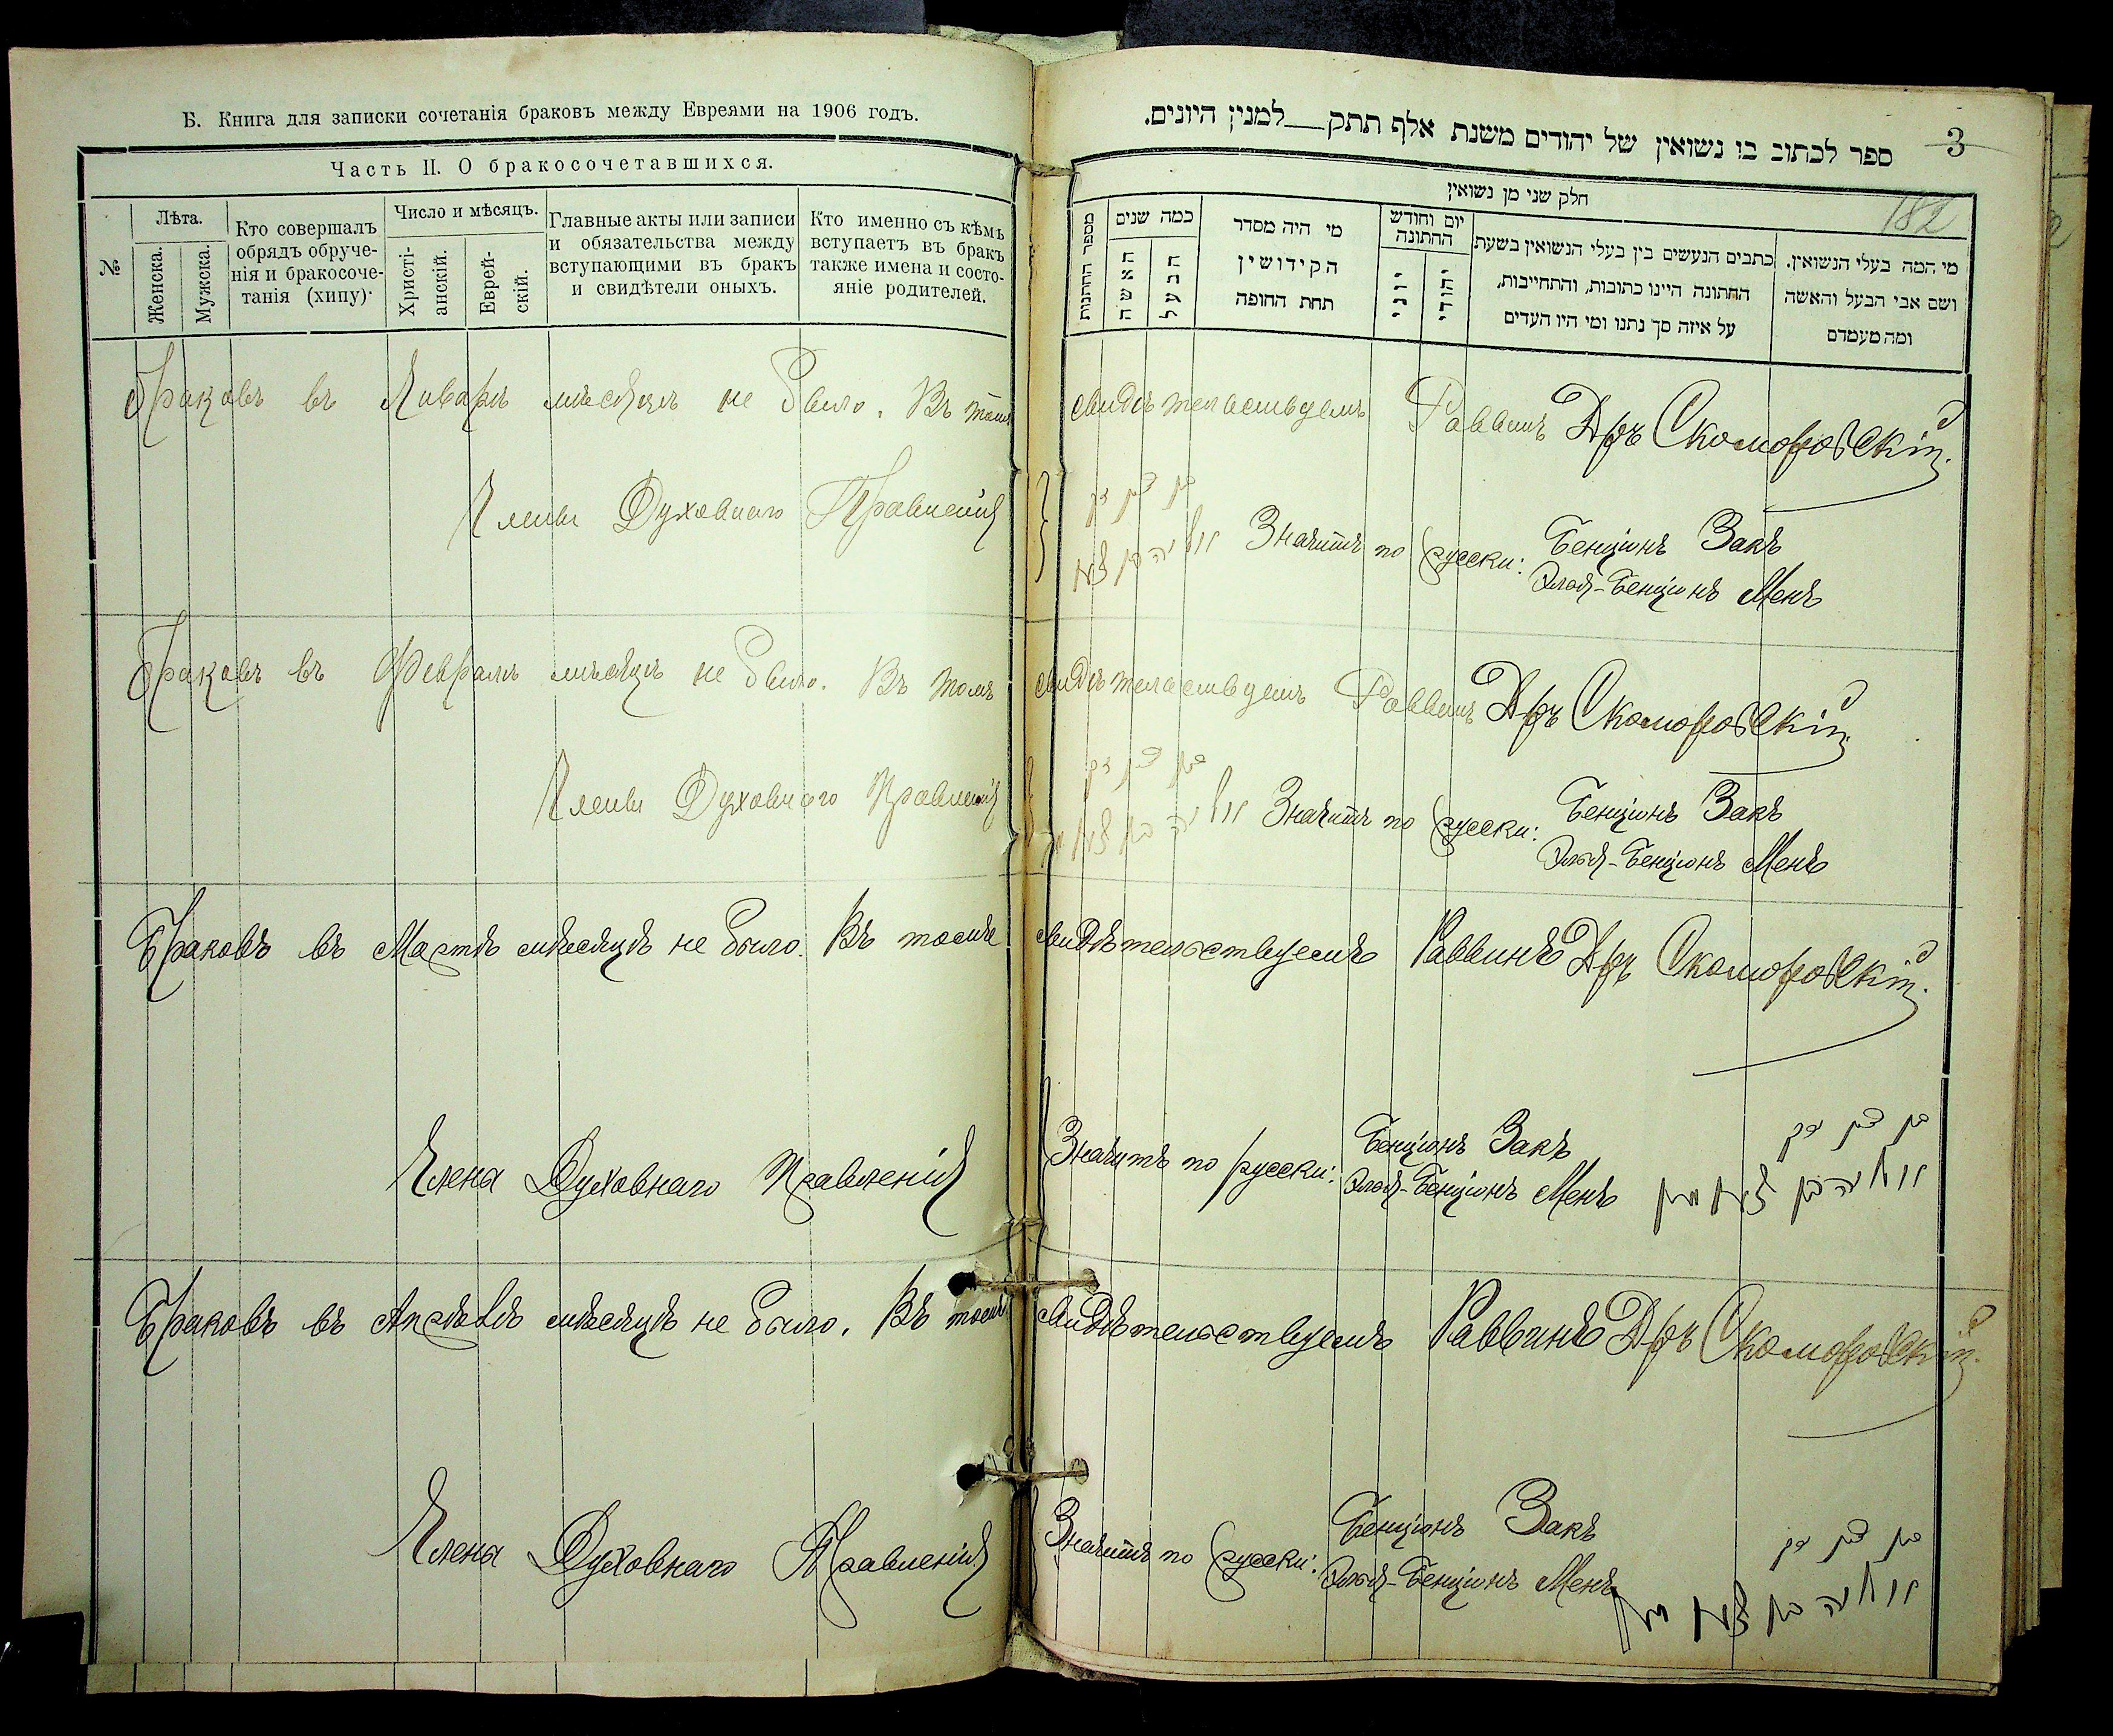 Б. Книга для записки сочетанія браковъ между Евреями на 1906 годъ.
Часть II. О бракосочетавшихся.
№
Лѣта.
Женска.
Мужска.
Кто совершалъ
обрядъ обруче-
нія и бракосоче-
танія (хипу)·
Число и мѣсяцъ.
Христі-
анскій.
Еврей-
скій.
Главные акты или записи
и обязательства между
вступающими въ бракъ
и свидѣтели оныхъ.
Кто именно съ кѣмъ
вступаетъ въ бракъ
также имена и состо-
яніе родителей.
ספר לכתוב בו נשואין של יהודים משנת אלף תתק___למנין היונים.
3
182
חלק שני מן נשואין
מספר החתנות
כמה שנים
האשה
הבעל
מי היה מסדר
הקידושין
תחת החופה
יום וחודש
החתונה
יוני
יהודי
כתבים הנעשים בין בעלי הנשואין בשעת
החתונה היינו כתובות, והתחייבות,
על איזה סך נתנו ומי היו העדים
מי המה בעלי הנשואין.
ושם אבי הבעל והאשה
ומה מעמדם
Браковъ въ Январѣ мѣсяцѣ не было. Въ томъ свидѣтельствуемъ Раввинъ Дръ Скоморовскій.
Члены Духовнаго Правленія
בן ציון זק
Значитъ по русски: Бенціонъ Закъ
Эліа-Бенціонъ Менъ
Браковъ въ Февралѣ мѣсяцѣ не было. Въ томъ свидѣтельствуемъ Раввинъ Дръ Скоморовскій.
Члены Духовнаго Правленія
בן ציון זק
Значитъ по русски: Бенціонъ Закъ
Эліа-Бенціонъ Менъ
Браковъ въ Мартѣ мѣсяцѣ не было. Въ томъ свидѣтельствуемъ Раввинъ Дръ Скоморовскій.
Члена Духовнаго Правленія
Значитъ по русски: Бенціонъ Закъ
Эліа-Бенціонъ Менъ
בן ציון זק
אליה בן ציון מען
Браковъ въ Апрѣлѣ мѣсяцѣ не было. Въ томъ свидѣтельствуемъ Раввинъ Дръ Скоморовскій.
Члена Духовнаго Правленія
Значитъ по русски: Бенціонъ Закъ
Эліа-Бенціонъ Менъ
בן ציון זק
אליה בן ציון מען